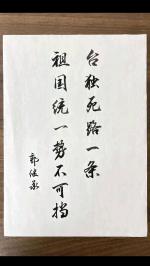 台独死路一条
祖国统一势不可挡